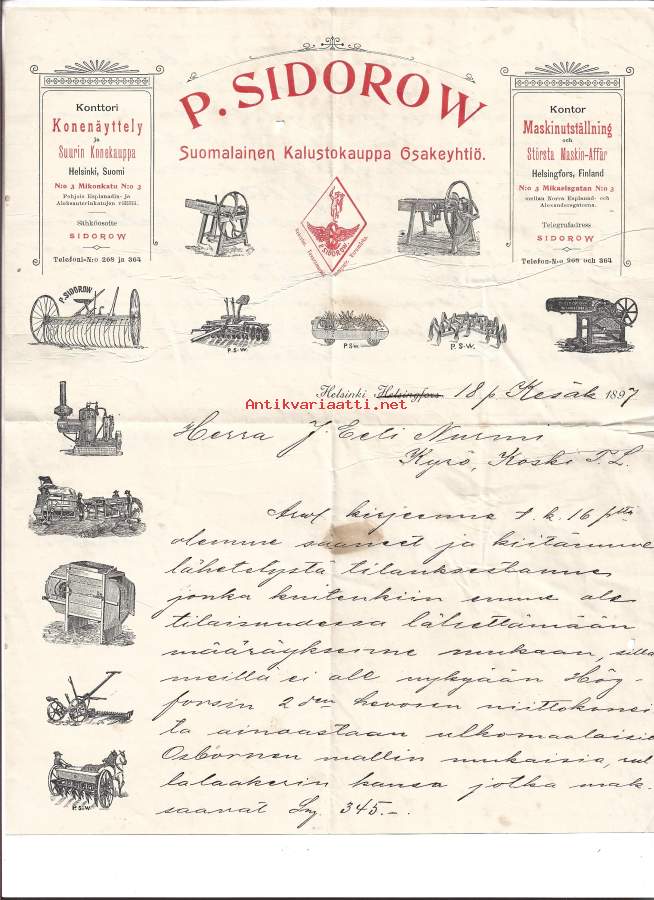 P. SIDOROW
Suomalainen Kalustokauppa Osakeyhtiö.
Konttori
Konenäyttely
ja
Suurin Konekauppa
Helsinki, Suomi
N:o 3 Mikonkatu N:o 3
Pohjois Esplanadin- ja
Aleksanterinkatujen välillä.
Sähköosotte
SIDOROW
Telefoni-N:o 268 ja 364
Kontor
Maskinutställning
och
Största Maskin-Affär
Helsingfors, Finland
N:o 3 Mikaelsgatan N:o 3
mellan Norra Esplanad- och
Alexandersgatorna.
Telegrafadress
SIDOROW
Telefon-N:o 268 och 364
P. SIDOROW
P. SIDOROW
P.S-W.
P.S-W.
P.S-W.
Helsinki Helsingfors 18 p. Kesäk. 1897
Antikvariaatti.net
Herra J. Eeli Nurmi
Kyrö, Koski T.L.
Arv. kirjeenne t.k. 16 p:ltä
olemme saaneet ja kiitämme
lähetetystä tilauksestanne
jonka kuitenkiin emme ole
tilaisuudessa lähettämään
määräyksenne mukaan, sillä
meillä ei ole nykyään Hög-
forsin 2 den hevosen niittokonei
ta ainoastaan ulkomaalaisia
Osbornen mallin mukaisia, rul
lalaakerin kanssa jotka mak-
saavat Smk 345.-.
P.S.W.